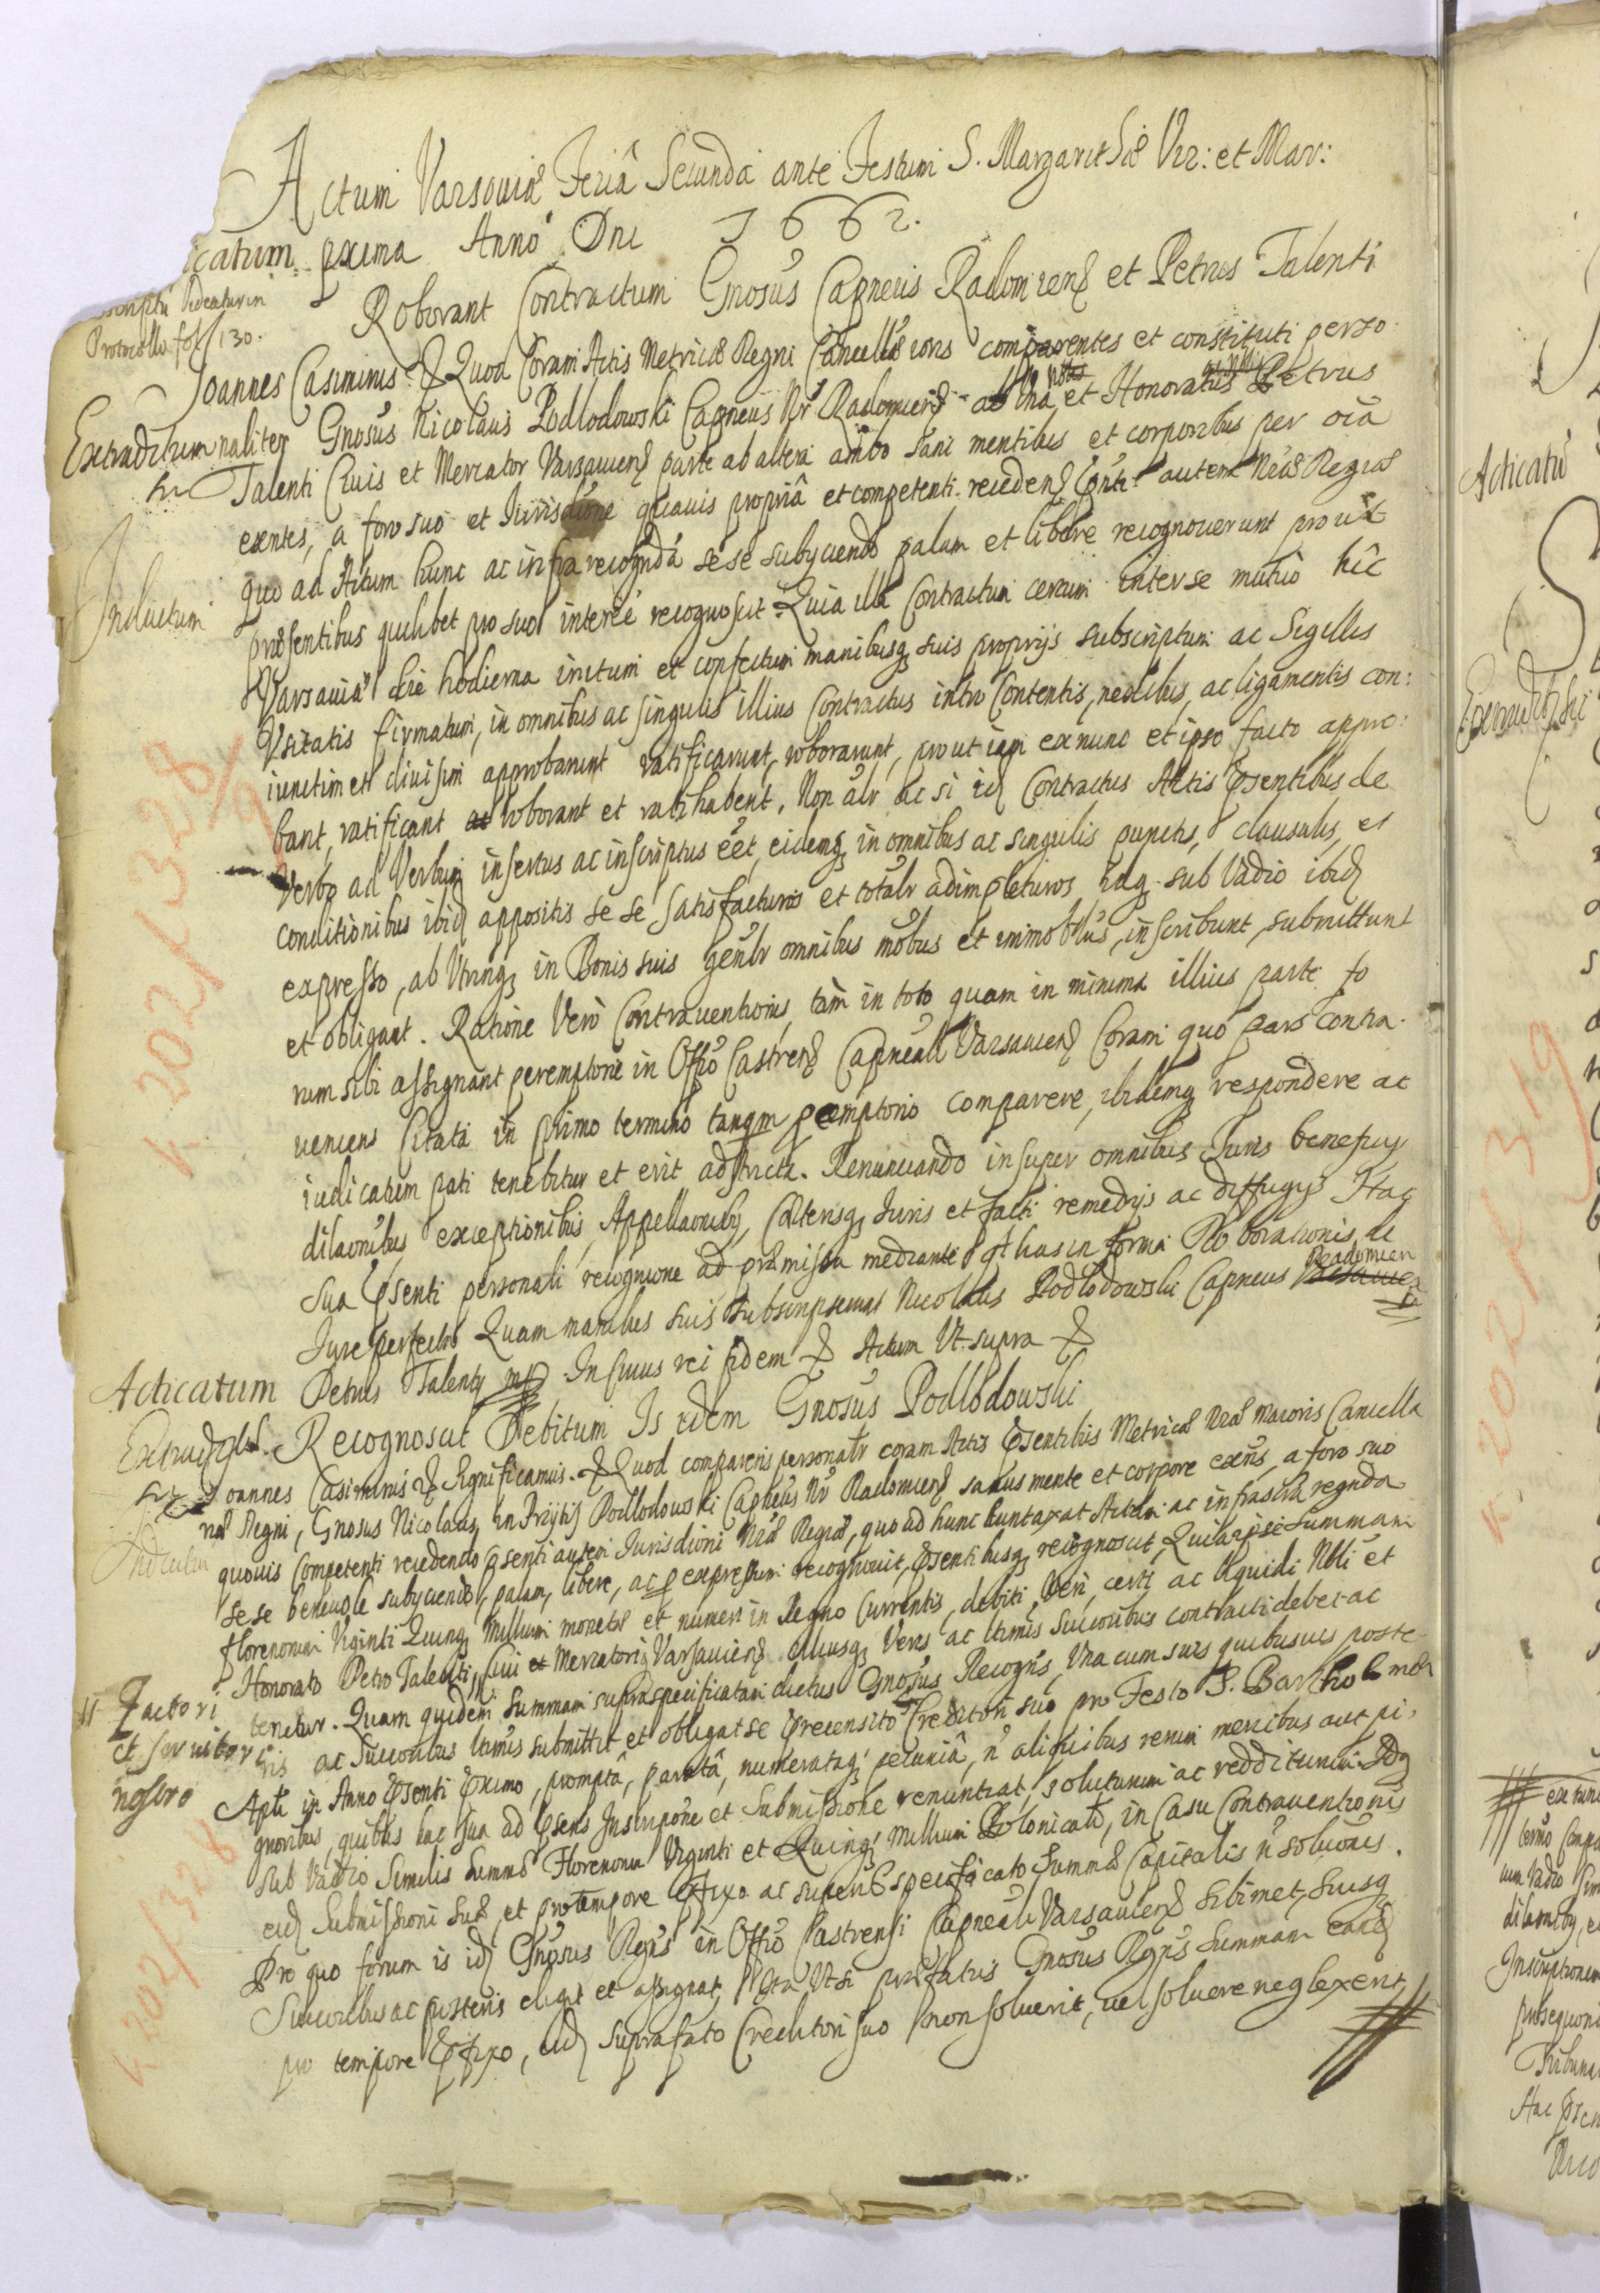 Actum Varsoviæ Feriâ Secunda ante Festum S. Margarit Sæ Vir: et Mar:
icatum pxima Anno Dni 1662.
Videntur in
Protocollo fol 130.
Roborant Contractum Gnosus Capneus Radomien et Petrus Talenti
Joannes Casimirus & Quod Coram Actis Metricæ Regni Cancellæ ioris comparentes et constituti perso
Extraditum naliter Gnosus Nicolaus Podlodowski Capneus Nr Radomien ab Una et Honoratus Petrus
Talenti Civis et Mercator Varsavien parte ab altera ambo sani mentibus et corporibus per oia
exentes, a foro suo et Jurisdione quavis propriâ et competenti recedendo psenti autem Nræ Regiæ
quo ad Actum hunc ac infra recognda sese subyciendo palam et libere recognoverunt prout
Inductum
præsentibus quilibet pro suo interee recognoscit Quia illi Contractum certum inter se mutuo hîc
Varsaviæ die hodierna initum et confectum manibusq suis proprijs subscriptum ac Sigillis
Usitatis firmatum, in omnibus ac singulis illius Contractus intro Contentis, nexibus, ac ligamentis con:
iunctim et divisim approbarunt ratificarunt, roborarunt, prout iam ex nunc et ipso facto appro:
bant, ratificant ac roborant et ratihabent, Non alr ac si id Contractus Actis psentibus de
Verbo ad Verbum insertus ac inscriptus eet, eidemq in omnibus ac singulis punctis, clausulis, et
Conditionibus ibid appositis se se satisfacturos et totalr adimpleturos idq sub Vadio ibid
expresso, ab Utrinq in Bonis suis genlr omnibus mobus et immobbus, inscribunt, submittunt
et obligant. Ratione Verò Contraventionis, tàm in toto quam in minima illius parte fo
rum sibi assignant peremptorie in Offo Castren Capneali Varsavien Coram quo pars contra
veniens Citata in primo termino tanqm peremptorio comparere, ibidemq respondere ac
iudicatum pati tenebitur et erit adstricta. Renunciando insuper omnibus Juris beneficijs
dilaonibus exceptionibus, Appellaonibq, Cæterisq Juris et facti remedijs ac diffugijs Hac
Sua psenti personali recognione ad præmissa mediante has in forma Roborationis de
Jure perfecta Quam manibus suis subscripserunt Nicolaus Podlodowski Capneus Radomien
Acticatum Petrus Talenty mp In Cuius rei fidem & Actum Ut supra &
Recognoscit Debitum Is idem Gnosus Podlodowski
Joannes Casimirus & Significamus & Quod comparens personalr coram Actis psentibus Metricæ Nræ Maioris Cancella
riæ Regni, Gnosus Nicolaus in Przytyk Podlodowski Capneus Nr Radomien sanus mente et corpore exens, a foro suo
quovis Competenti recedendo psenti autem Jurisdioni Nræ Regiæ, quo ad hunc duntaxat Actum ac infrascta regnda
sese benevole subyciendo, palam, libere, ac p expressum recognovit, psentibusq recognoscit, Quia ipse Summam
florenorum Viginti Quinq Millium monetæ et numeri in Regno Currentis, debiti, Veri, certi ac liquidi Nbli et
Honorato Petro Talenti, Civi et Mercatori Varsavien eiusq Veris ac ltimis Succoribus contracti debet ac
Factori et servitori nostro
tenetur. Quam quidem Summam supraspecificatam dictus Gnosus Recogns, Una cum suis quibusvis poste
ris ac Succoribus ltimis submittit et obligat se precensito Creditori suo pro Festo S. Bartholomæi
Apli in Anno psenti pximo, promptâ, paratâ, numerataq pecuniâ, n aliquibus rerum mercibus aut pi,
gnoribus, quibus hac sua ad psens Inscripone et Submissione renuntiat, soluturum ac redditurum Idq
Sub Vadio Similis Summæ Florenorum Viginti et Quinq Millium Polonicali, in Casu Contraventionis
eid Submissioni suæ, et pro tempore pfixo ac superius specificato Summæ Capitalis n soluonis.
Pro quo forum is id Gnosus Regns in Offo Castrensi Capneali Varsavien sibimet, suisq
Succoribus ac posteris eligit et assignat, Ita Ut si præfatus Gnosus Regns Summam eand
pro tempore pfixo, eid suprafato Creditori suo non solverit, vel solvere neglexerit,
K 202/328
K 202/328
K 202/319
Acticatu